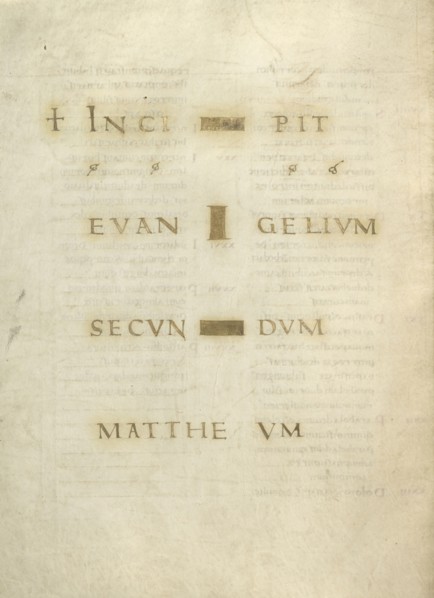 † INCI PIT
EVAN GELIVM
SECVN DVM
MATTHE VM